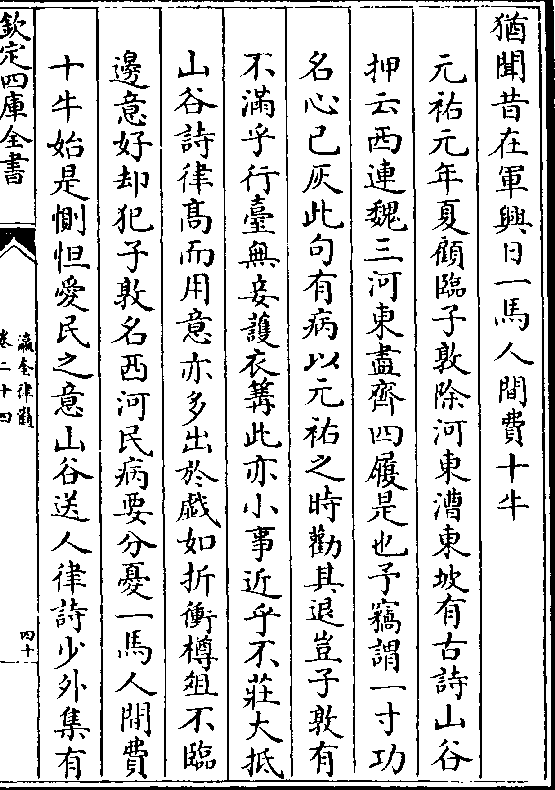 猶聞昔在軍興日一馬人間費十牛
元祐元年夏顧臨子敦除河東漕東坡有古詩山谷
押云西連魏三河東盡齊四履是也予竊謂一寸功
名心已灰此句有病以元祐之時勸其退豈子敦有
不滿乎行臺無妾護衣篝此亦小事近乎不莊大抵
山谷詩律髙而用意亦多出於戯如折衝樽俎不臨
邊意好却犯子敦名西河民病要分憂一馬人間費
十牛始是惻怛愛民之意山谷送人律詩少外集有
欽定四庫全書
瀛奎律髓
卷二十四
四十